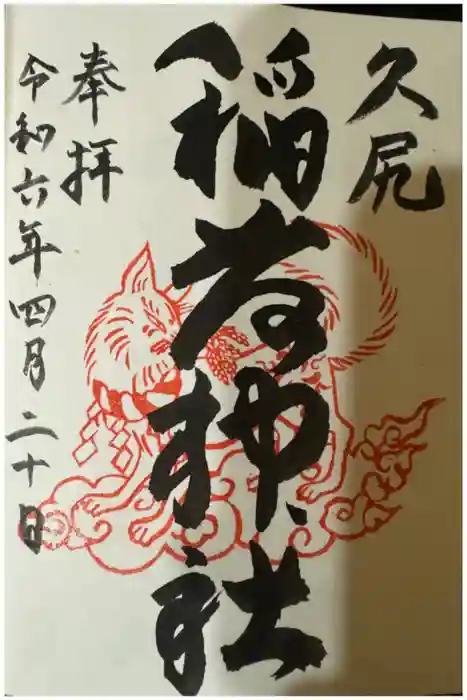 久尻
稲荷神社
奉拝
令和六年四月二十日